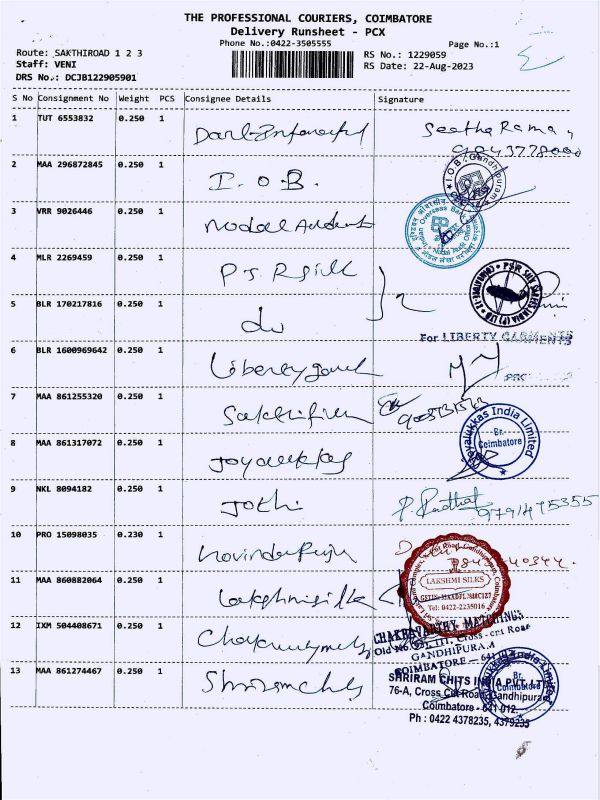 THE PROFESSIONAL COURIERS, COIMBATORE
Delivery Runsheet - PCX
Phone No.:0422-3505555
Page No.:1
Route: SAKTHIROAD 1 2 3
RS No.: 1229059
Staff: VENI
RS Date: 22-Aug-2023
DRS No.: DCJB122905901
S No Consignment No Weight PCS Consignee Details Signature
1 TUT 6553832 0.250 1
Seetha Raman
2 MAA 296872845 0.250 1 I.O.B.
I.O.B. Gandhipuram
3 VRR 9026446 0.250 1 Nodal
Indian Overseas Bank
4 MLR 2269459 0.250 1
PSR SILK SAREES INDIA (P) LTD
5 BLR 170217816 0.250 1 do
For LIBERTY GARMENTS
6 BLR 1600969642 0.250 1
7 MAA 861255320 0.250 1
8 MAA 861317072 0.250 1 Joyalukkas
Joyalukkas India Limited
Br.
Coimbatore
9 NKL 8094182 0.250 1 Jothi
9791495355
10 PRO 15098035 0.230 1
11 MAA 860882064 0.250 1 Lakshmi silks
LAKSHMI SILKS
Tel: 0422-2235016
12 IXM 504408671 0.250 1
CHAKRAVARTHY MATCHINGS
GANDHIPURAM
COIMBATORE
13 MAA 861274467 0.250 1 Shriram Chits
SHRIRAM CHITS INDIA PVT. LTD
76-A, Cross Cut Road, Gandhipuram
Coimbatore - 641 012.
Ph : 0422 4378235, 4379235
India Limited
Br.
Coimbatore